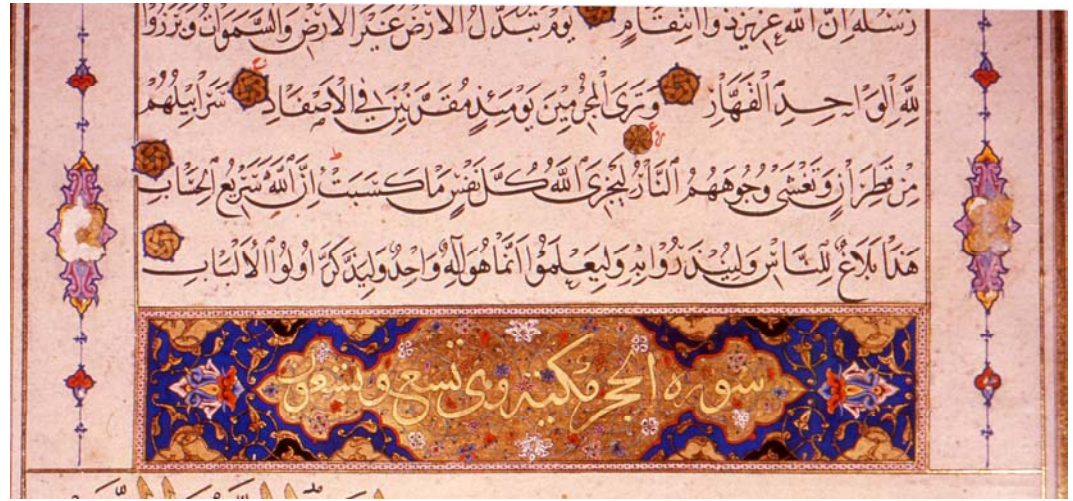 رُسُلَهُ إِنَّ اللَّهَ عَزِيزٌ ذُو انْتِقَامٍ يَوْمَ تُبَدَّلُ الْأَرْضُ غَيْرَ الْأَرْضِ وَالسَّمَوَاتُ وَبَرَزُوا
لِلَّهِ الْوَاحِدِ الْقَهَّارِ وَتَرَى الْمُجْرِمِينَ يَوْمَئِذٍ مُقَرَّنِينَ فِي الْأَصْفَادِ سَرَابِيلُهُمْ
مِنْ قَطِرَانٍ وَتَغْشَى وُجُوهَهُمُ النَّارُ لِيَجْزِيَ اللَّهُ كُلَّ نَفْسٍ مَا كَسَبَتْ إِنَّ اللَّهَ سَرِيعُ الْحِسَابِ
هَذَا بَلَاغٌ لِلنَّاسِ وَلِيُنْذَرُوا بِهِ وَلِيَعْلَمُوا أَنَّمَا هُوَ إِلَهٌ وَاحِدٌ وَلِيَذَّكَّرَ أُولُوا الْأَلْبَابِ
سورة الحجر مكية وهي تسع وتسعون